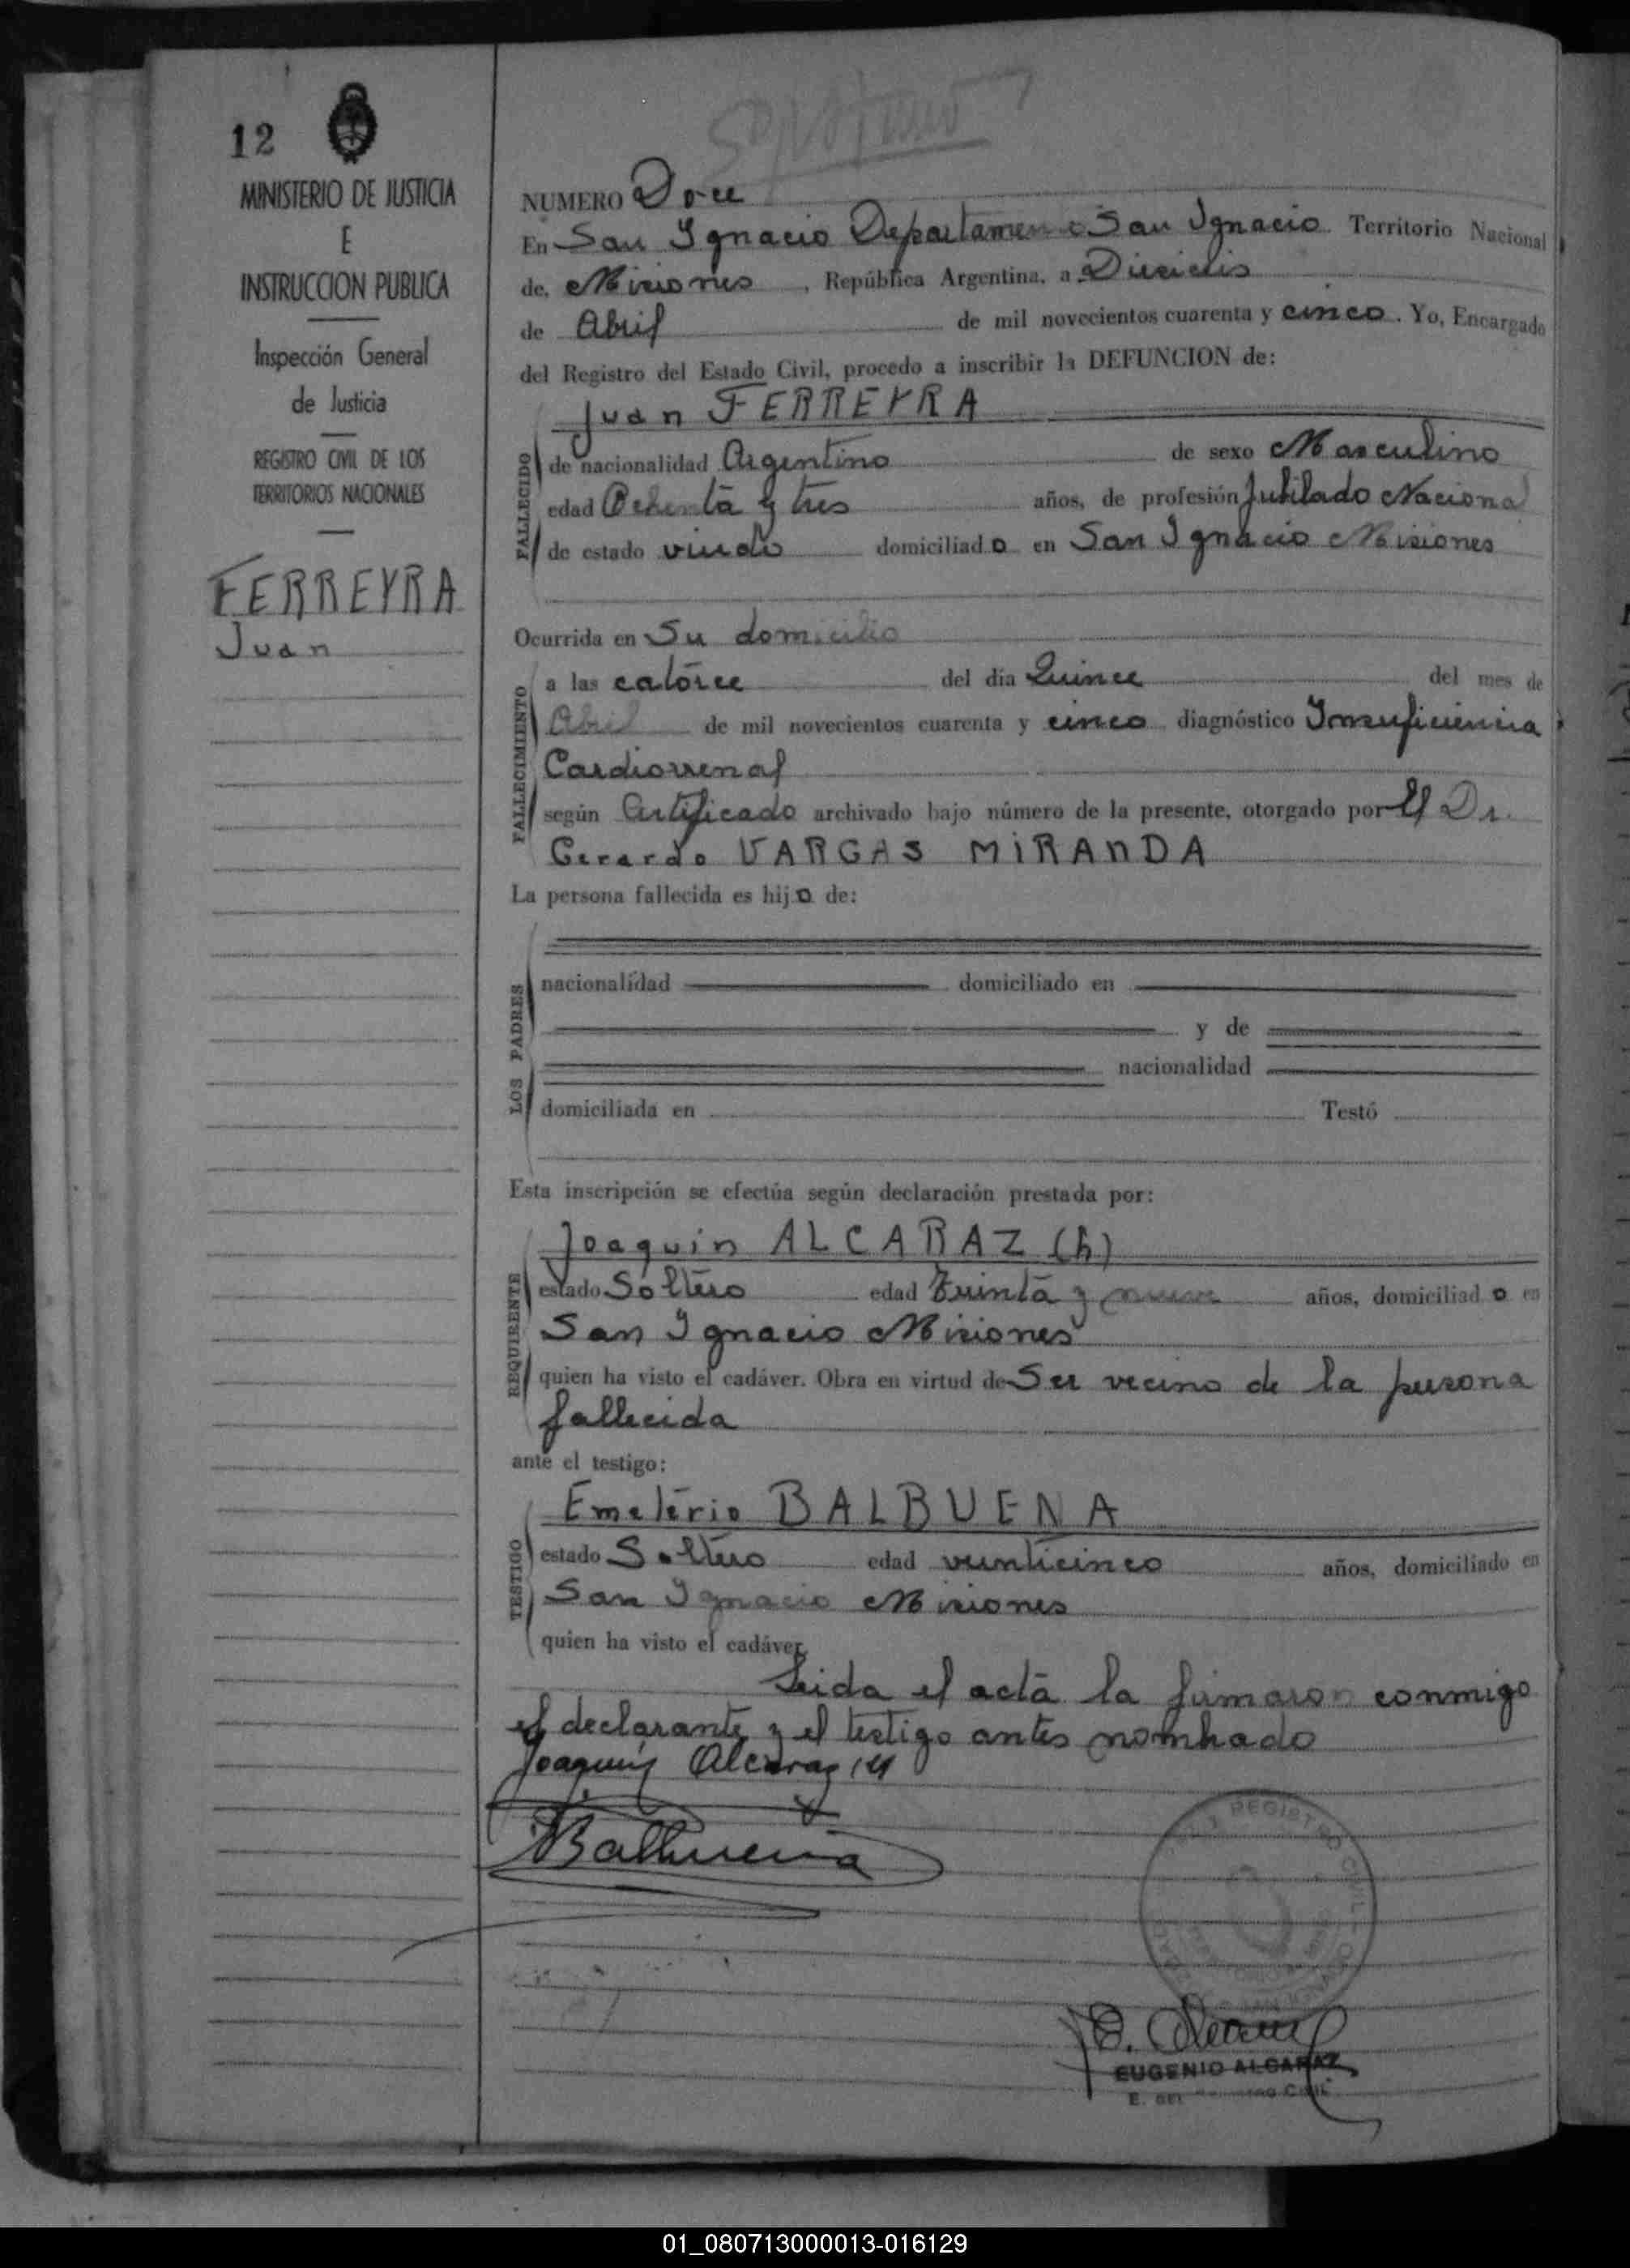 12
MINISTERIO DE JUSTICIA
E
INSTRUCCION PUBLICA
Inspección General
de Justicia
REGISTRO CIVIL DE LOS
TERRITORIOS NACIONALES
FERREYRA
Juan
NUMERO Doce
En San Ignacio Departamento San Ignacio. Territorio Nacional
de, Misiones, República Argentina, a Dieciseis
de Abril de mil novecientos cuarenta y cinco. Yo, Encargado
del Registro del Estado Civil, procedo a inscribir la DEFUNCION de:
Juan FERREYRA
FALLECIDO
de nacionalidad Argentino de sexo Masculino
edad Ochenta y tres años, de profesión Jubilado Nacional
de estado viudo domiciliado en San Ignacio Misiones
Ocurrida en Su domicilio
FALLECIMIENTO
a las catorce del día Quince del mes de
Abril de mil novecientos cuarenta y cinco diagnóstico Insuficiencia
Cardiorrenal
según Certificado archivado bajo número de la presente, otorgado por El Dr.
Gerardo VARGAS MIRANDA
La persona fallecida es hijo de:
LOS PADRES
nacionalidad domiciliado en
y de
nacionalidad
domiciliada en Testó
Esta inscripción se efectúa según declaración prestada por:
Joaquin ALCARAZ (h)
REQUIRENTE
estado Soltero edad Treinta y nueve años, domiciliado en
San Ignacio Misiones
quien ha visto el cadáver. Obra en virtud de Ser vecino de la persona
fallecida
ante el testigo:
Emeterio BALBUENA
TESTIGO
estado Soltero edad veinticinco años, domiciliado en
San Ignacio Misiones
quien ha visto el cadáver.
Leida el acta la firmaron conmigo
el declarante y el testigo antes nombrado
Joaquin Alcaraz (h)
Balbuena
REGISTRO CIVIL
E. Alcaraz
EUGENIO ALCARAZ
E. DEL REGISTRO CIVIL
01_080713000013-016129